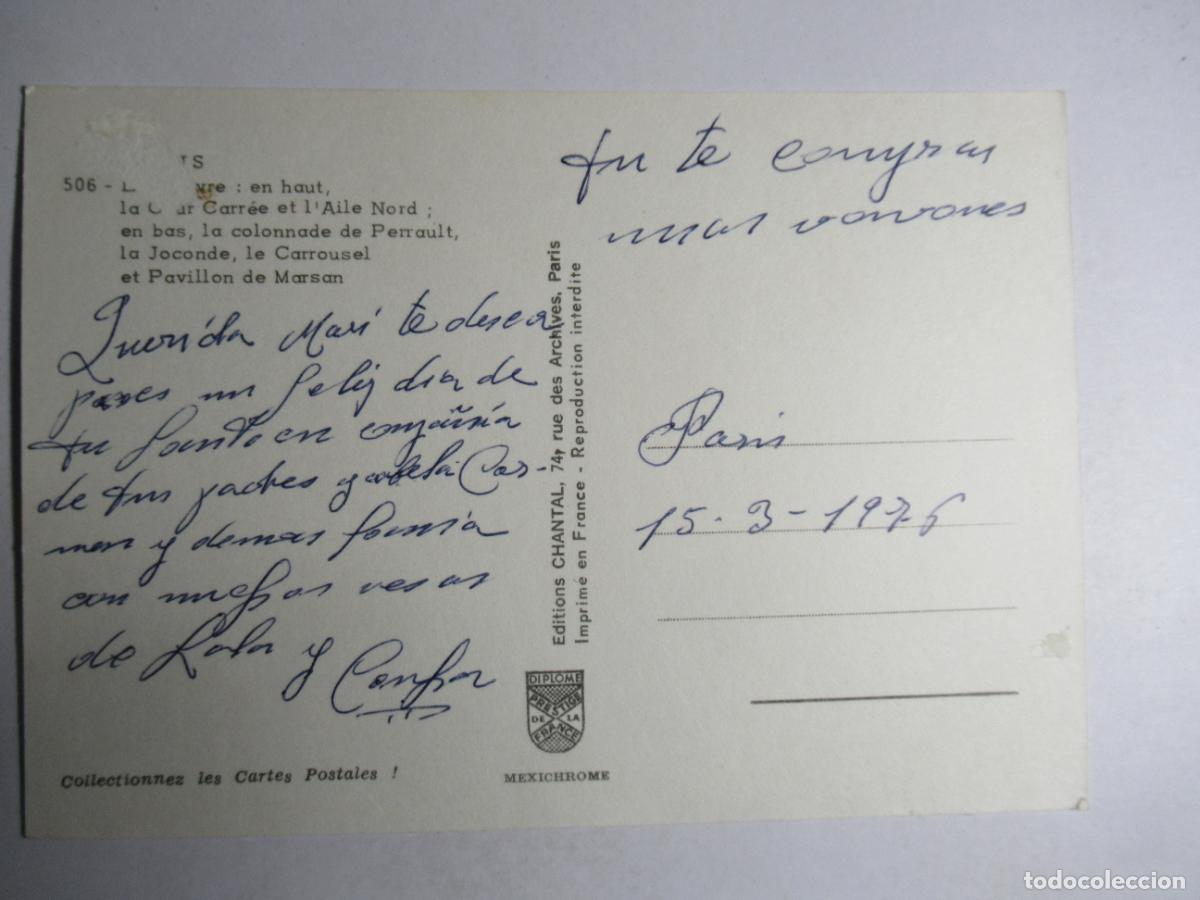 506 - : en haut,
la Carrée et l'Aile Nord ;
en bas, la colonnade de Perrault,
la Joconde, le Carrousel
et Pavillon de Marsan
Querida Mari te desea
un feliz dia de
tu Santo en compañia
de tus padres y Car-
men y demas
con muchos vesos
de Lala y
Collectionnez les Cartes Postales !
Editions CHANTAL, 74, rue des Archives, Paris
Imprimé en France - Reproduction interdite
DIPLOME
PRESTIGE
DE LA
FRANCE
MEXICHROME
tu te compras
unos vonvones
Paris
15-3-1976
todocoleccion